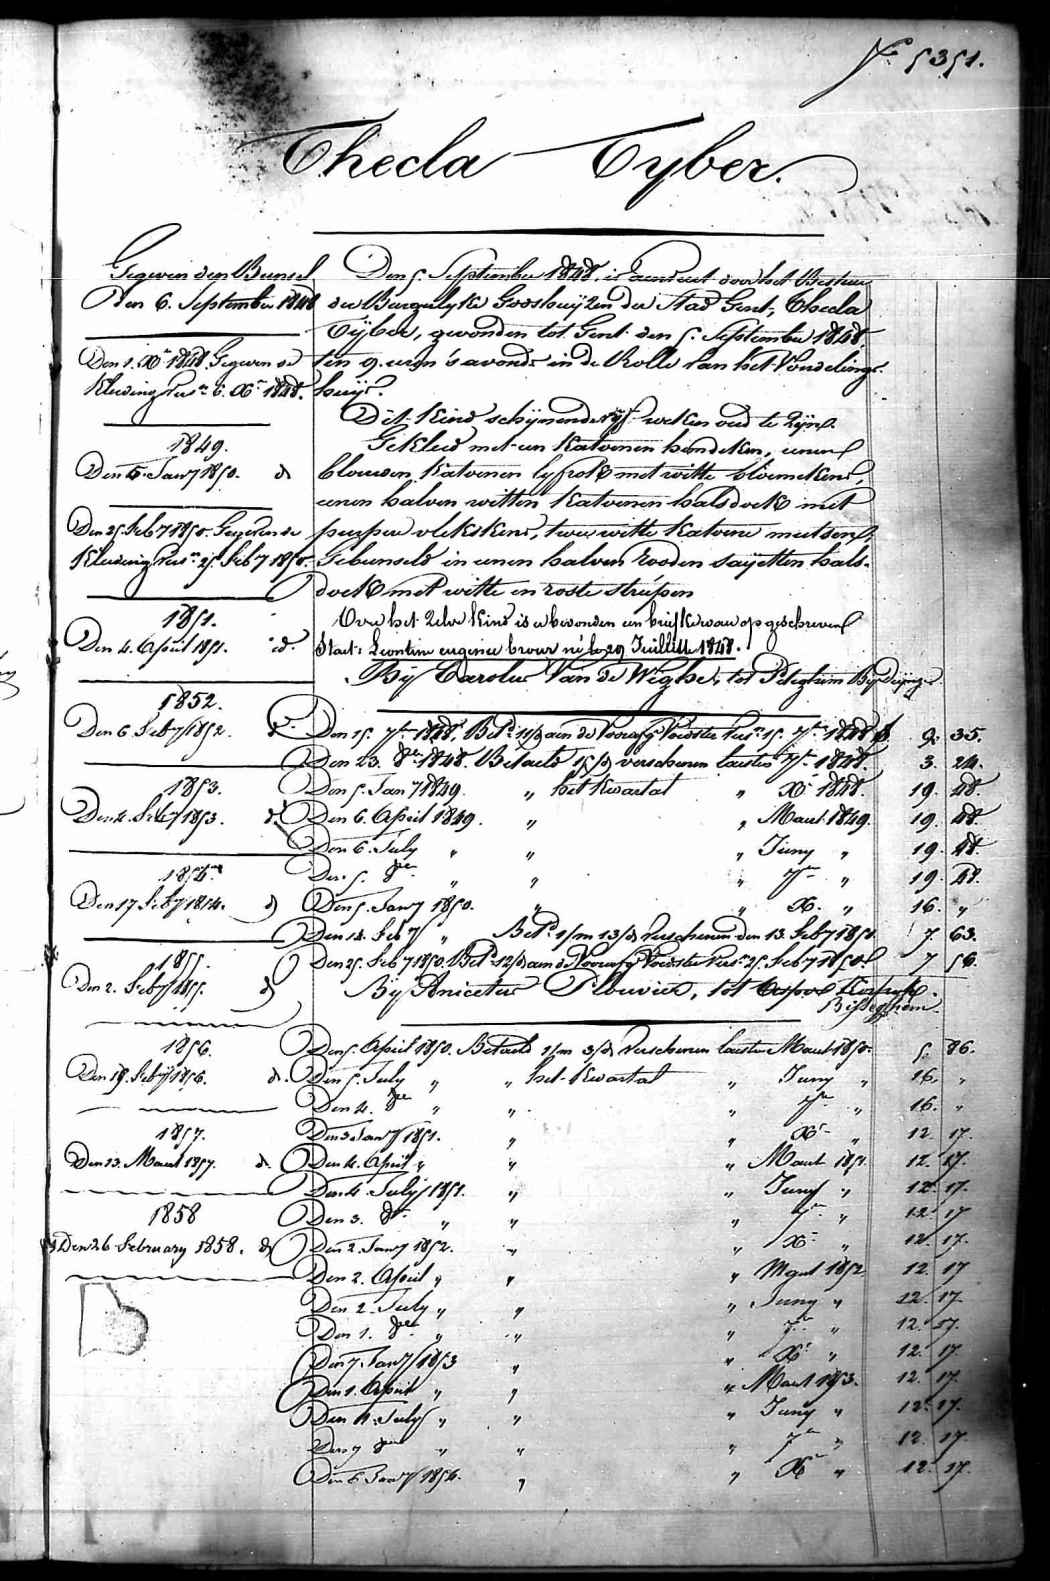 N.° 5351.
Thecla Tyber.
Gegeven den Bunsel
Den 6. September 1848
Den 1. X.r 1848. Gegeven de
Kleeding Pers.n 6. X.r 1848.
1849.
Den 5. Jan.y 1850. d.
Den 25. Feb.y 1850. Gegeven de
Kleeding Pers.n 25. Feb.y 1850.
1851.
Den 4. April 1851. id.
1852.
Den 6. Feb.y 1852. d.
1853.
Den 4. Feb.y 1853. d.
1854.
Den 17 Feb.y 1854. d.
1855.
Den 2. Feb.y 1855. d.
1856.
Den 19. Feb.y 1856. d.
1857.
Den 13. Maart 1857. d.
1858
Den 26 February 1858. d.
Den 5. September 1848. is aenveert door het Bestuer
der Burgerlyke Godshuyzen der Stad Gent, Thecla
Tyber, gevonden tot Gent den 5. September 1848.
ten 9. uren 's avonds in de Rolle van het Vondelinge-
huys.
Dit Kind schynende vyf weken oud te zyn.
Gekleed met een Katoenen hemdeken, eenen
blauwen Katoenen lyfrok met witte bloemekens,
eenen halven witten Katoenen halsdoek met
purper vlekskens, twee witte Katoene mutsen,
Gebunseld in eenen halven rooden sayetten hals-
doek met witte en roste strepen
Over het zelve Kind is er bevonden een briefken waer op geschreven
Staet: Leontine eugenie brour né le 29 Juillitte 1848.
By Carolus Van de Wighe, tot Peteghem By Deynze
Den 15. 7.re 1848. Bet.d 11/d aen de Voorafg.e Voedster Pers.n 15. 7.re 1848 f 2. 35.
Den 23. 8.re 1848. Betaeld 15/d verschenen lasten 7.re 1848. 3. 24.
Den 5. Jan.y 1849. „ het Kwartael „ X.r 1848. 19. 48.
Den 6. April 1849. „ „ Maert 1849. 19. 48.
Den 6. July „ „ „ Juny „ 19. 48.
Den 5. 8.re „ „ „ 7.re „ 19. 48.
Den 5. Jan.y 1850. „ „ X. „ 16. „
Den 14. Feb.y „ Bet.d 1/m 13/d verschenen den 13. Feb.y 1850. 7. 63.
Den 25. Feb.y 1850. Bet.d 12/d aen de Voorafg.e Voedster Pers.n 25. Feb.y 1850. 7 50.
By Anicetus Plouvier, tot Kortryk
Bisseghem.
Den 5. April 1850. Betaeld 1/m 3/d verschenen lasten Maert 1850. 5. 86.
Den 5. July „ „ het Kwartael „ Juny „ 16. „
Den 4. 8.re „ „ „ 7.re „ 16. „
Den 3 Jan.y 1851. „ „ X.r „ 12. 17.
Den 4. April „ „ „ Maert 1851. 12. 17.
Den 4. July 1851. „ „ Juny „ 12. 17.
Den 3. 8.re „ „ „ 7.re „ 12. 17
Den 2. Jan.y 1852. „ „ X.r „ 12. 17.
Den 2. April „ „ „ Maert 1852 12. 17
Den 2. July „ „ „ Juny „ 12. 17.
Den 1. 8.re „ „ „ 7.re „ 12. 17.
Den 7. Jan.y 1853 „ „ X.r „ 12. 17.
Den 1. April „ „ „ Maert 1853. 12. 17.
Den 4. July „ „ „ Juny „ 12. 17.
Den 7 8.re „ „ „ 7.re „ 12. 17.
Den 6 Jan.y 1854. „ „ X.r „ 12. 17.